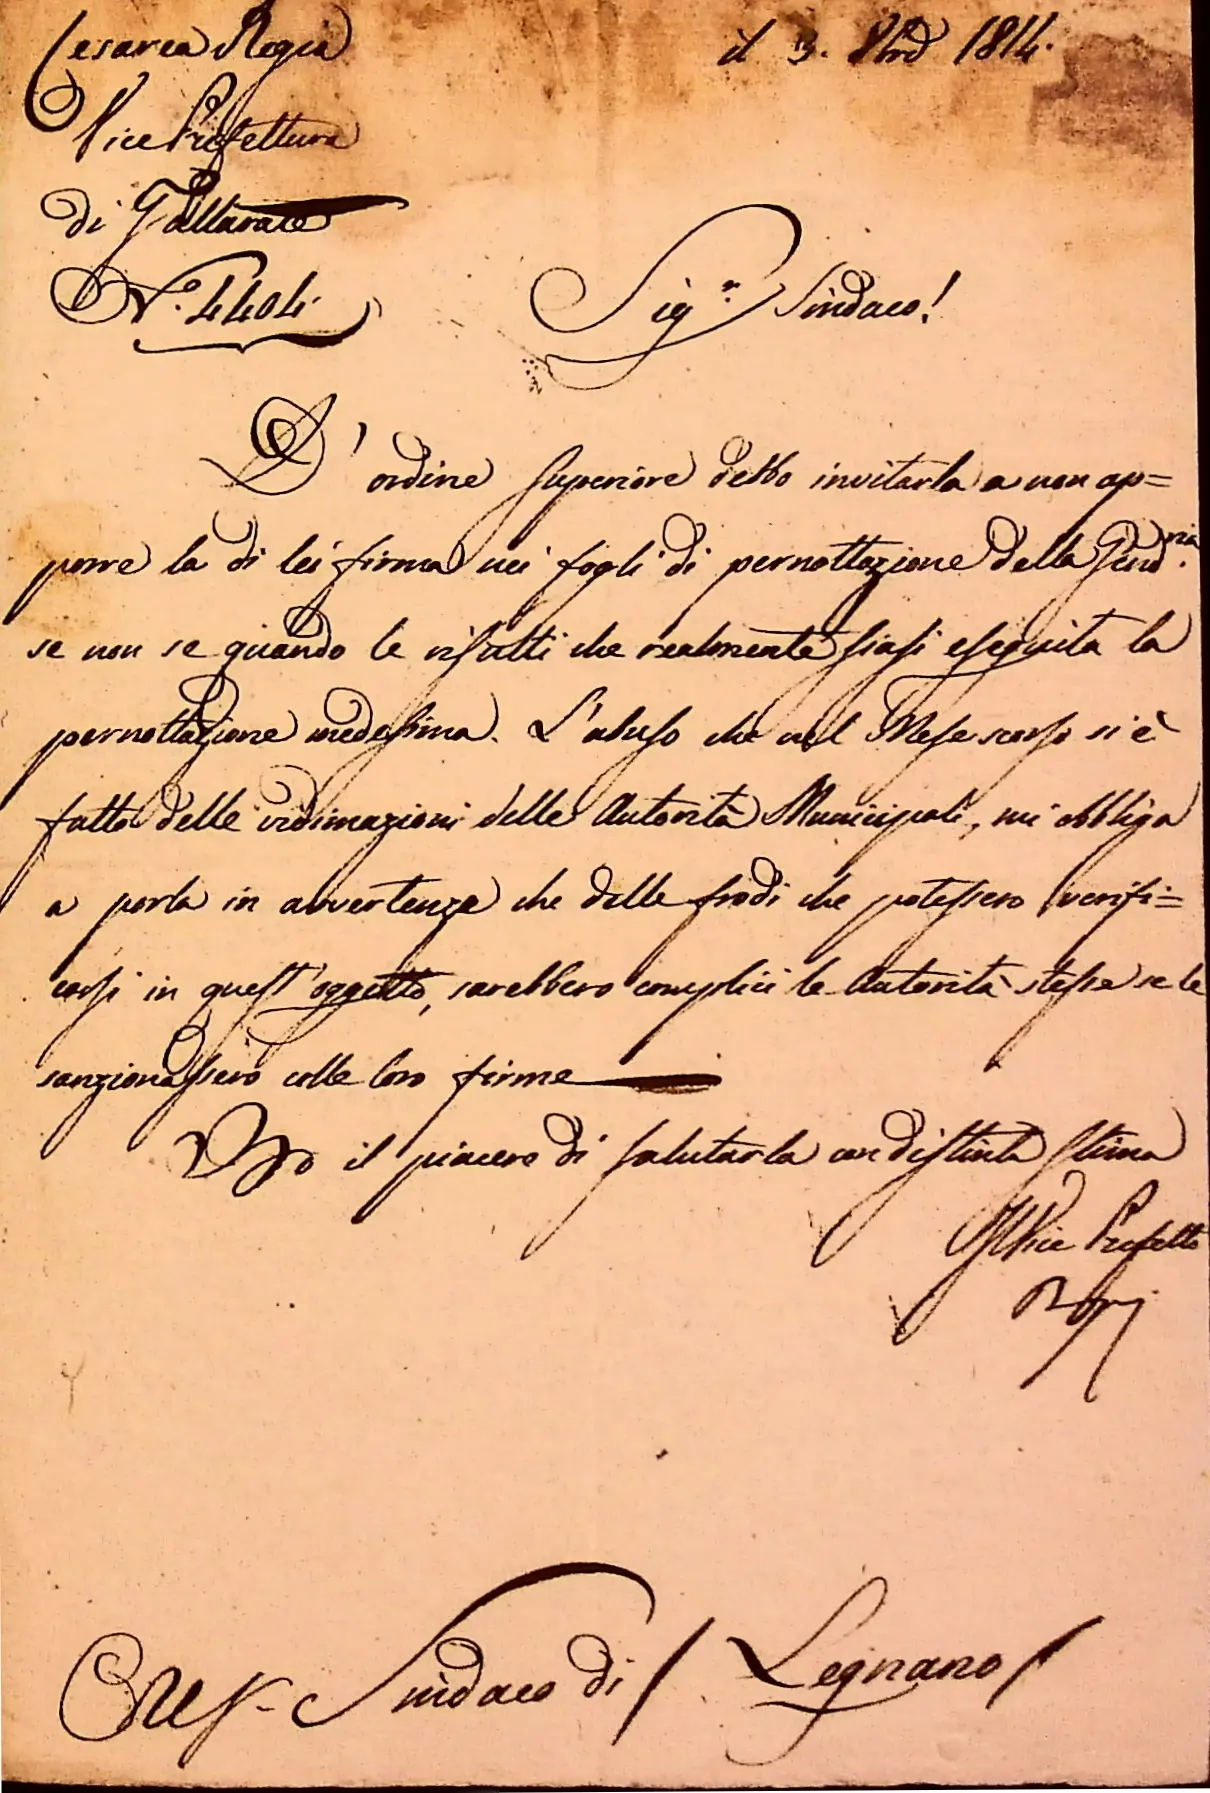 Cesarea Regia
Vice Prefettura
di Gallarate
N.° 4404
il 3. 8brè 1814.
Sig.r Sindaco!
D'ordine Superiore debbo invitarla a non ap=
porre la di lei firma nei fogli di pernottazione della Gend.ria
se non se quando le risulti che realmente siasi eseguita la
pernottazione medesima. L'abuso che nel Mese scorso si è
fatto delle vidimazioni delle Autorità Municipali, mi obbliga
a porla in avvertenza che delle frodi che potessero verifi=
carsi in quest'oggetto, sarebbero complici le Autorità stesse se le
sanzionassero colle loro firme
Ho il piacere di salutarla con distinta stima
Il Vice Prefetto
Sindaco di / Legnano /